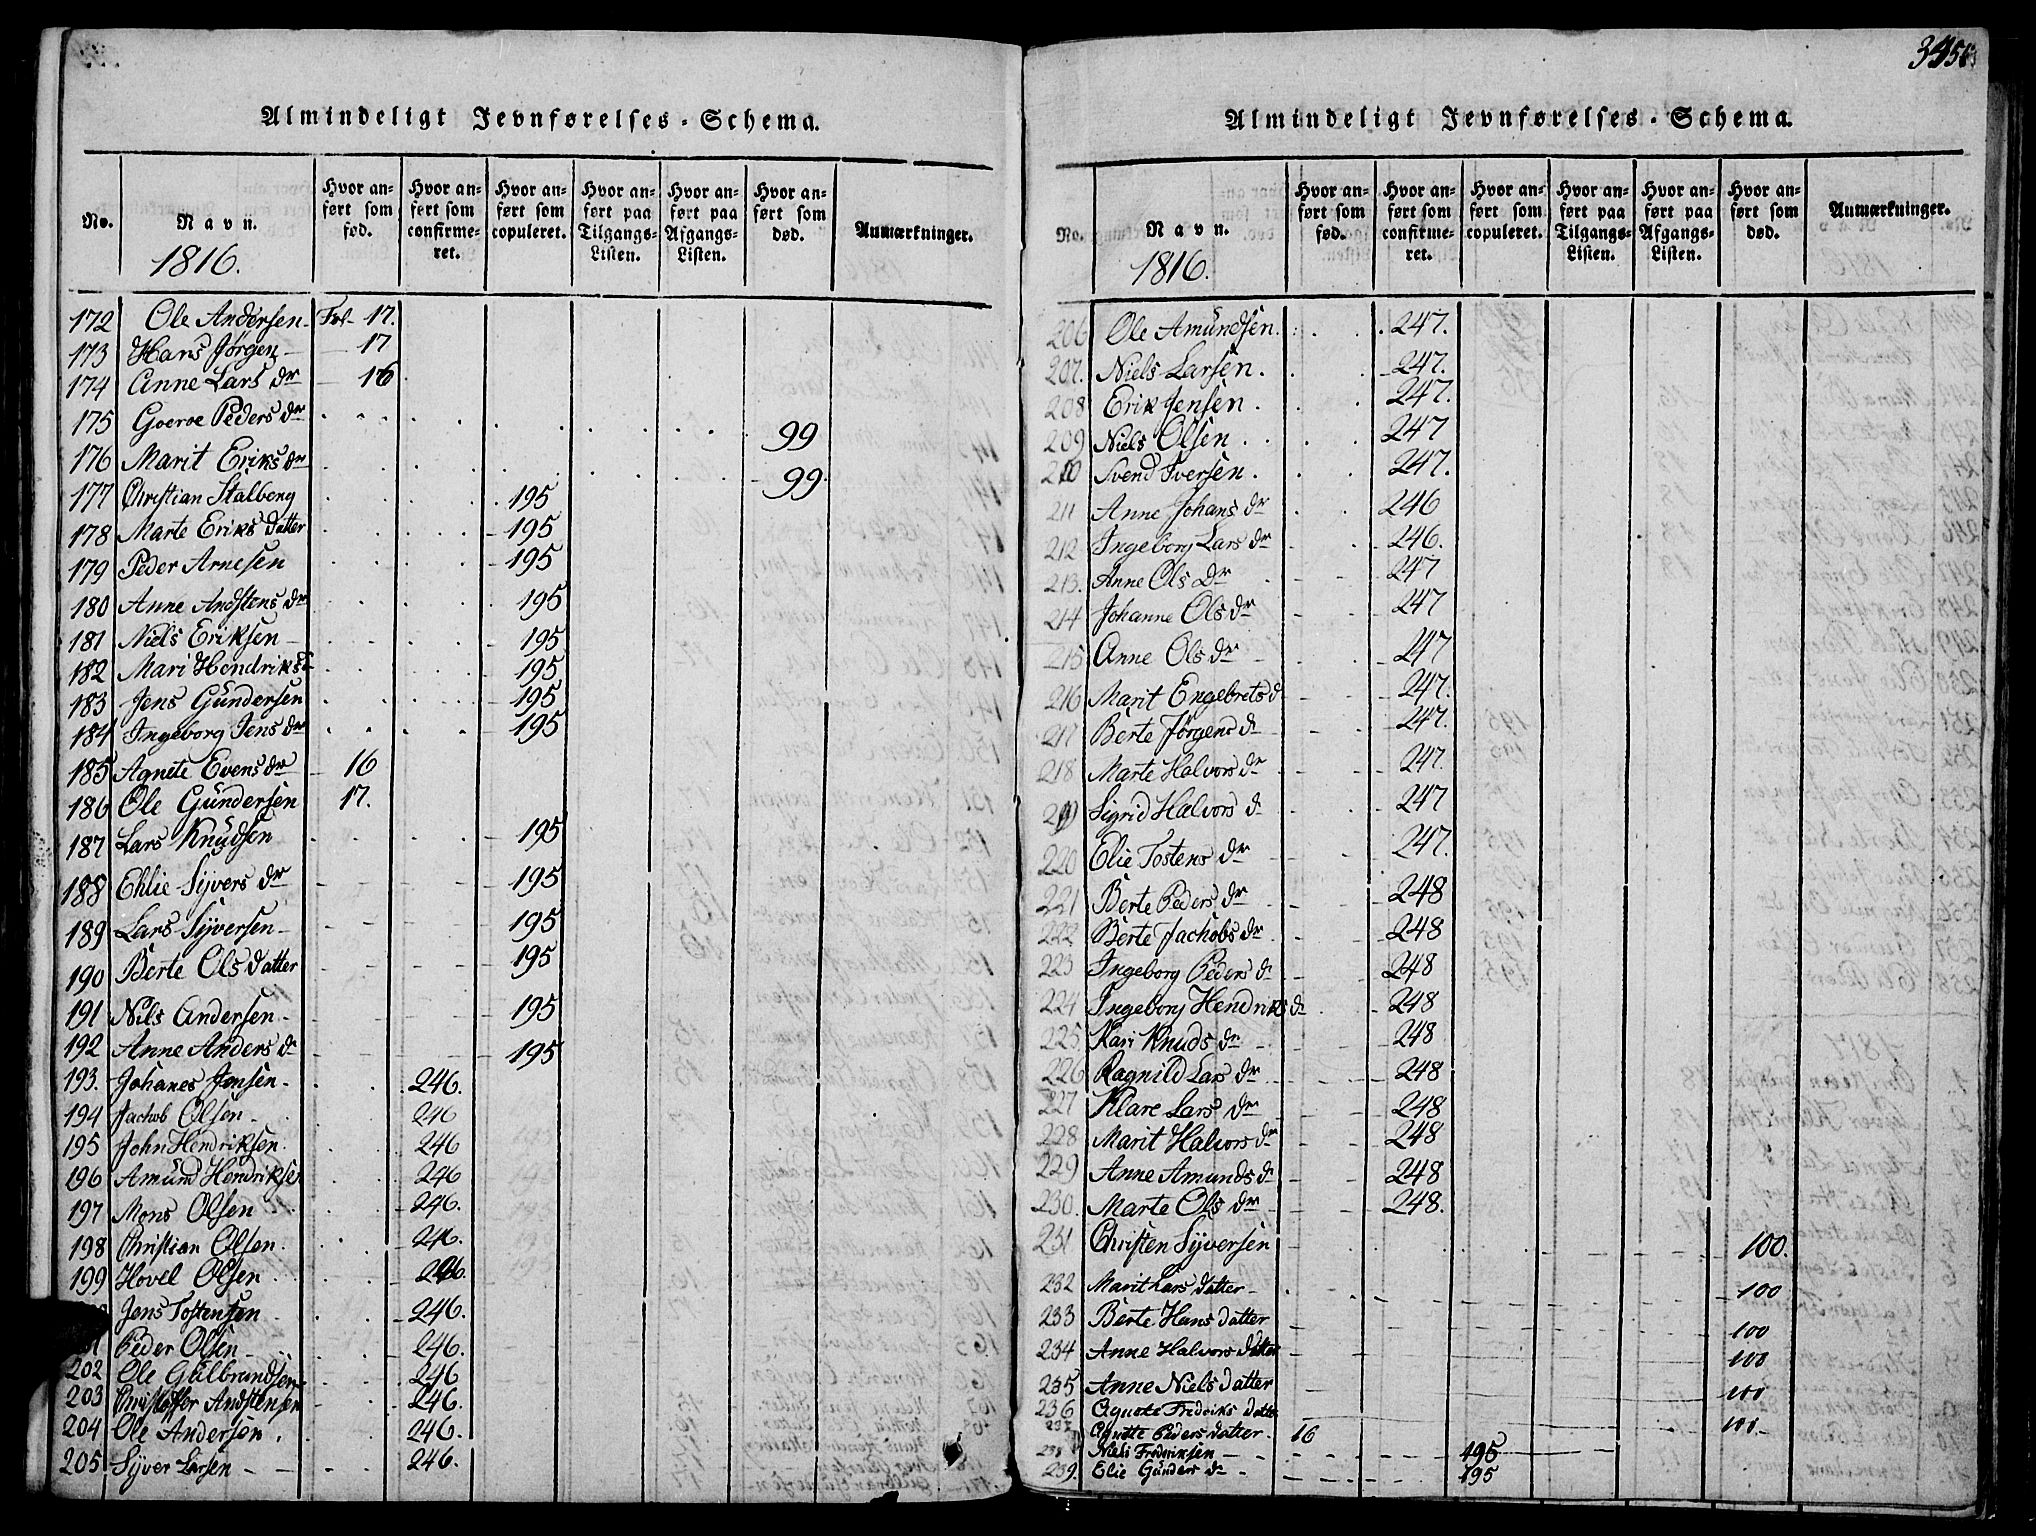 Almindeligt Jevnførelses-Schema.
No. Navn. 1816. Hvor anført som fød. Hvor anført som confirmeret. Hvor anført som copuleret. Hvor anført paa Tilgangs-Listen. Hvor anført paa Afgangs-Listen. Hvor anført som død. Anmærkninger.
172 Ole Andersen Fol 17.
173 Hans Jørgen 17
174 Anne Lars dr 16
175 Goeroe Peders dr 99
176 Marit Eriks dr 99
177 Christian Stalberg 195
178 Marte Eriks datter 195
179 Peder Arnesen 195
180 Anne Andstens dr 195
181 Niels Eriksen 195
182 Mari Hendriksd 195
183 Jens Gundersen 195
184 Ingeborg Jens dr 195
185 Agnete Evens dr 16
186 Ole Gundersen 17.
187 Lars Knudsen 195
188 Ehlie Syvers dr 195
189 Lars Syversen 195
190 Berte Olsdatter 195
191 Nils Andersen 195
192 Anne Anders d 195
193. Johanes Jensen 246.
194 Jachob Olsen 246
195 John Hendriksen 246
196 Amund Hendriksen 246
197 Mons Olsen 246.
198 Christian Olsen 246.
199 Hovel Olsen 246.
Jens Tostensen 246.
Peder Olsen 246.
202 Ole Gulbrandsen 246
203 Christoffer Andstensen 246.
204 Ole Andersen 246.
205 Syver Larsen 246.
Almindeligt Jevnførelses-Schema.
No. Navn. 1816. Hvor anført som fød. Hvor anført som confirmeret. Hvor anført som copuleret. Hvor anført paa Tilgangs-Listen. Hvor anført paa Afgangs-Listen. Hvor anført som død. Anmærkninger.
206 Ole Amundsen. 247.
207. Niels Larsen. 247.
208 Erik Jensen. 247.
209 Niels Olsen 247
210 Svend Iversen. 247.
211 Anne Johans dr 246
212 Ingeborg Lars dr 246.
213. Anne Ols Dr 247
214 Johanne Ols dr 247
215 Anne Ols dr 247
216 Marit Engebrets d 247.
217 Berte Jørgens d 247.
218 Marte Halvors dr 247.
219 Sigrid Halvors d 247
220 Elie Tostens dr 247.
221 Berte Peders dr 248
222 Berte Jachobs dr 248
223 Ingeborg Peders d 248
224 Ingeborg Hendriks d 248
225 Kari Knuds dr 248
226 Ragnild Lars dr 248
227 Klare Lars dr 248
228 Marit Halvors dr 248
229 Anne Amunds d 248
230. Marte Ols dr 248.
231 Christen Syversen 100.
232 Marit Lars datter 100
233 Berte Hans datter 100
234 Anne Halvors datter 100
235 Anne Niels datter 100
236 Agnete Fredriks datte 100.
237 Agnette Peders datter. 16
238 Niels Fredriksen 195
239. Elie Gunders dr 195